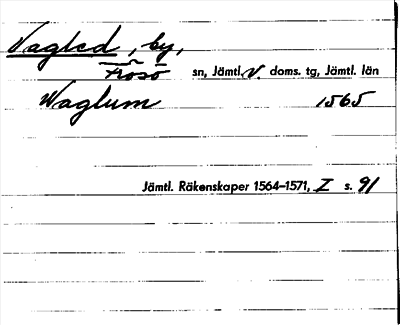 Vagled, by,
Frösö sn, Jämtl. V. doms. tg, Jämtl. län
Waglum 1565
Jämtl. Räkenskaper 1564–1571, I s. 91